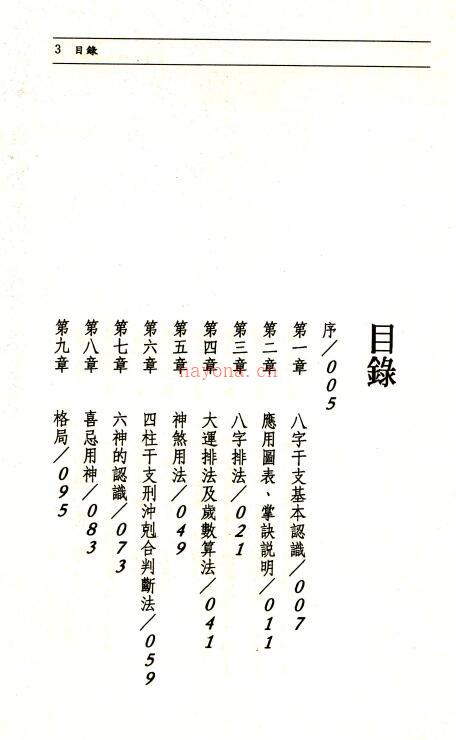 3 目錄
目錄
序／005
第一章 八字干支基本認識／007
第二章 應用圖表、掌訣說明／011
第三章 八字排法／021
第四章 大運排法及歲數算法／041
第五章 神煞用法／049
第六章 四柱干支刑沖剋合判斷法／059
第七章 六神的認識／073
第八章 喜忌用神／083
第九章 格局／095
hayona.cn